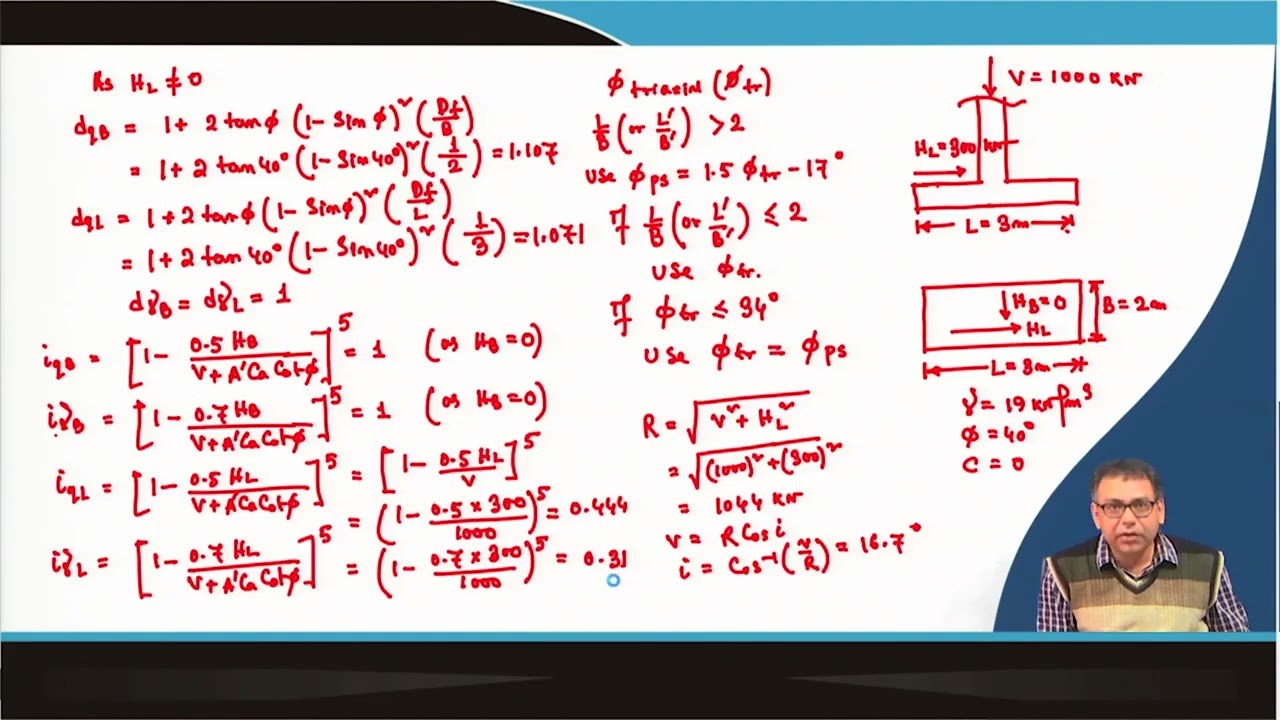 As H_L ≠ 0
d_qB = 1 + 2 tanφ (1 - Sin φ)² (Df/B)
= 1 + 2 tan40° (1 - Sin40°)² (1/2) = 1.107
d_qL = 1 + 2 tanφ (1 - Sinφ)² (Df/L)
= 1 + 2 tan40° (1 - Sin40°)² (1/3) = 1.071
d_γB = d_γL = 1
i_qB = [1 - 0.5 H_B / (V + A'Ca Cotφ)]^5 = 1 (as H_B = 0)
i_γB = [1 - 0.7 H_B / (V + A'Ca Cotφ)]^5 = 1 (as H_B = 0)
i_qL = [1 - 0.5 H_L / (V + A'Ca Cotφ)]^5 = [1 - 0.5 H_L / V]^5
= (1 - 0.5 × 300 / 1000)^5 = 0.444
i_γL = [1 - 0.7 H_L / (V + A'Ca Cotφ)]^5 = (1 - 0.7 × 300 / 1000)^5 = 0.31
φ triaxial (φ_tr)
L/B (or L'/B') > 2
use φ_ps = 1.5 φ_tr - 17°
If L/B (or L'/B') ≤ 2
use φ_tr.
If φ_tr ≤ 34°
use φ_tr = φ_ps
R = √(V² + H_L²)
= √((1000)² + (300)²)
= 1044 kN
V = R Cos i
i = Cos⁻¹ (V/R) = 16.7°
V = 1000 kN
H_L = 300 kN
L = 3m
H_B = 0
H_L
B = 2m
L = 3m
γ = 19 kN/m³
φ = 40°
C = 0